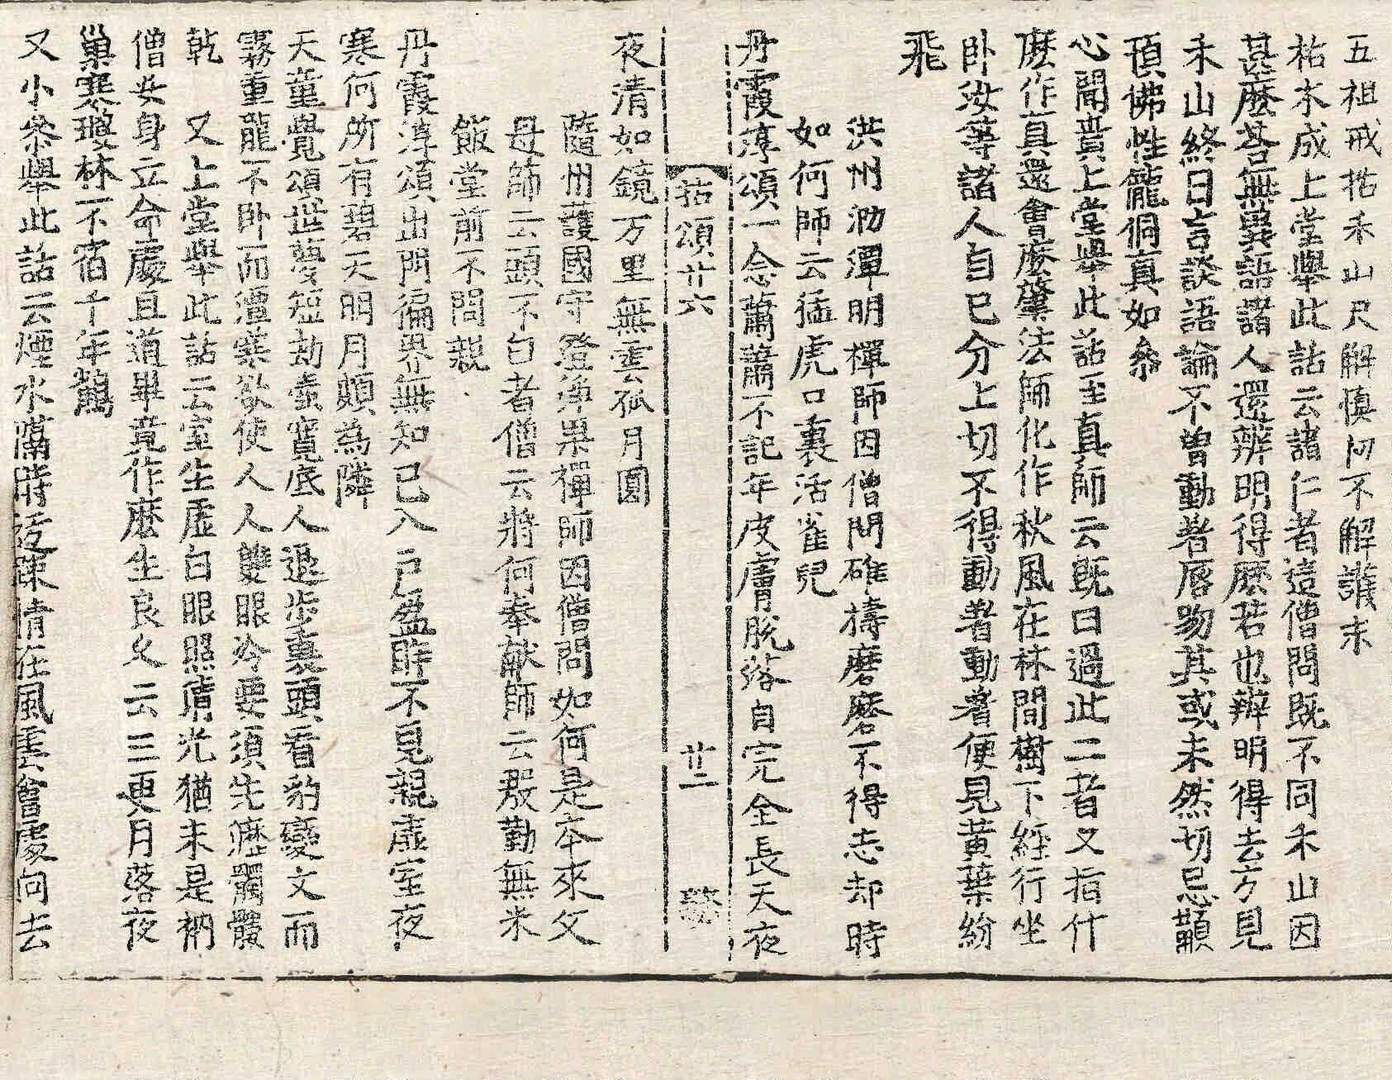 五祖戒拈禾山尺解慎初不解護末
枯木成上堂舉此話云諸仁者這僧問既不同禾山因
甚麼荅無異語諸人還辨明得麼若也辨明得去方見
禾山終日言談語論不曾動着脣吻其或未然切忌顢
頇佛性儱侗眞如叅
心聞賁上堂舉此話至眞師云既曰過此二者又指什
麽作眞還會麽肇法師化作秋風在林間樹下經行坐
卧汝等諸人自己分上切不得動着動着便見黃葉紛
飛
洪州泐潭明禪師因僧問碓擣磨磨不得忘却時
如何師云猛虎口裏活雀兒
丹霞淳頌一念蕭蕭不記年皮膚脫落自完全長天夜
拈頌廿六 廿二
夜清如鏡万里無雲孤月圓
隨州護國守澄淨果禪師因僧問如何是夲來父
母師云頭不白者僧云將何奉獻師云殷勤無米
飯堂前不問親
丹霞淳頌出門徧界無知己入戶盈眸不見親虛室夜
寒何所有碧天明月頗為隣
天童覺頌世夢短劫壺寬底人退步裏頭看豹變文而
霧重龍不卧而潭寒欲使人人雙眼冷要須先瀝髑髏
乾 又上堂舉此話云室生虛白眼照情光猶未是衲
僧安身立命處且道畢竟作麽生良久云三更月落夜
巢寒瓊林不宿千年鶴
又小叅舉此話云煙水滿時 情在風雲會處向去